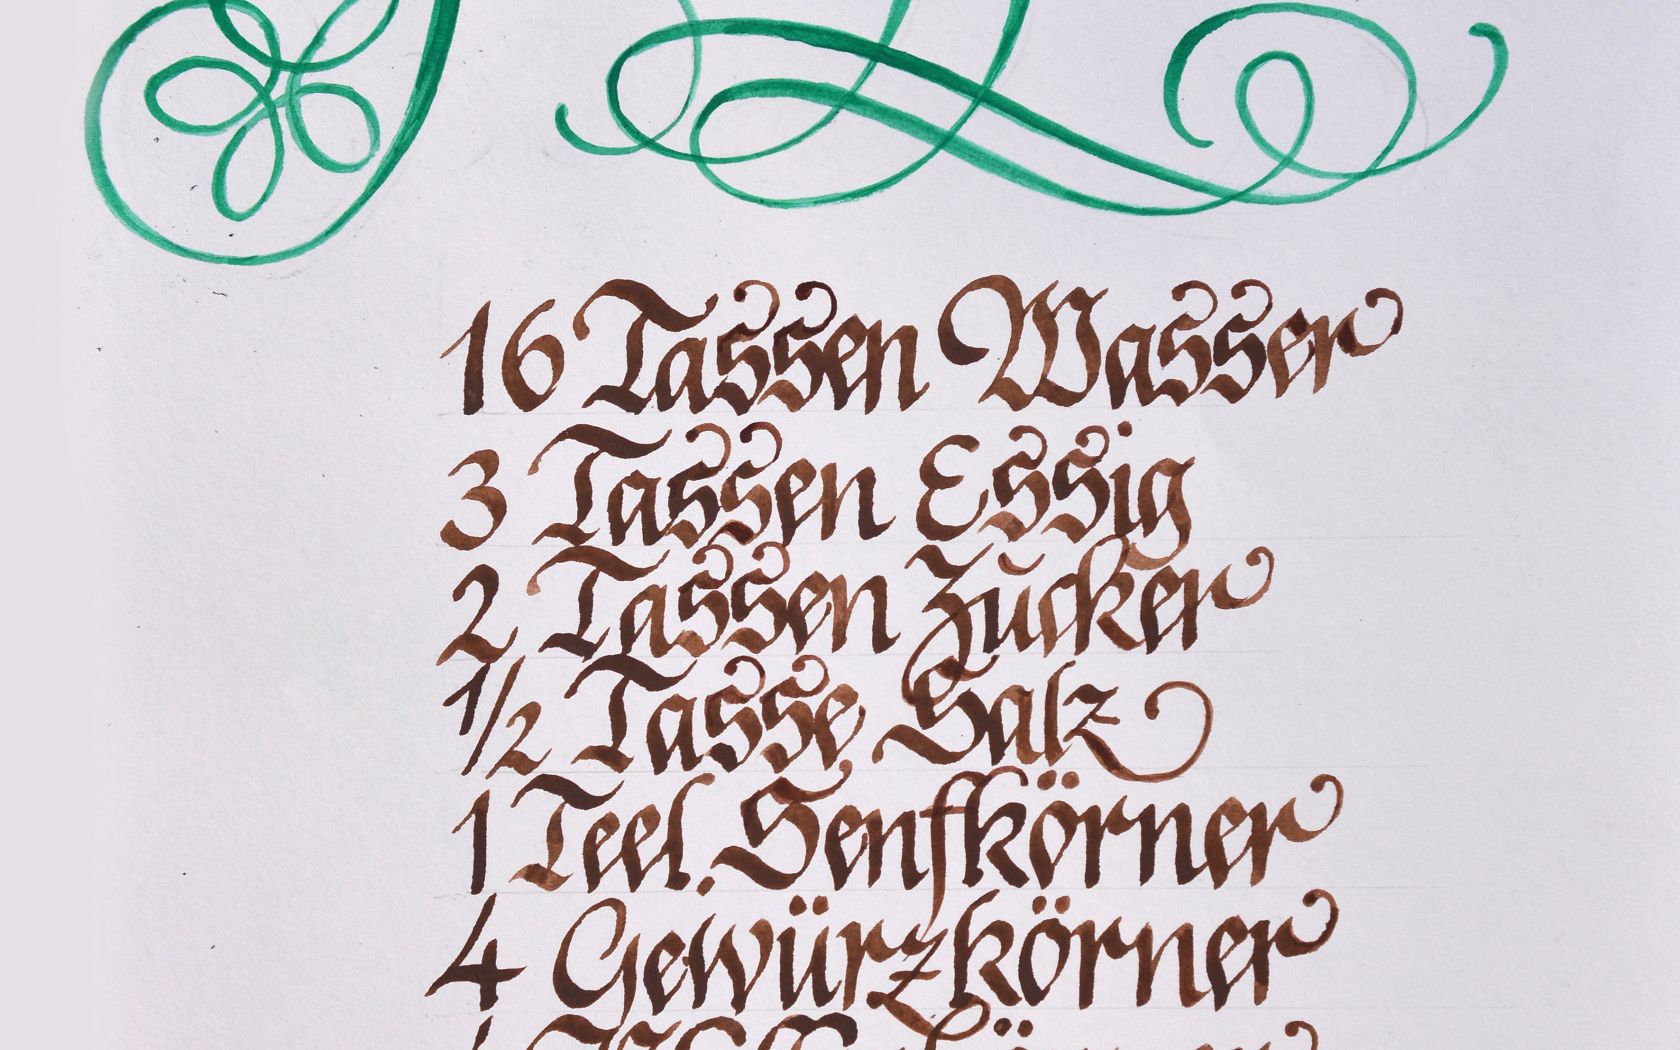 16 Tassen Wasser
3 Tassen Essig
2 Tassen Zucker
1/2 Tasse Salz
1 Teel. Senfkörner
4 Gewürzkörner